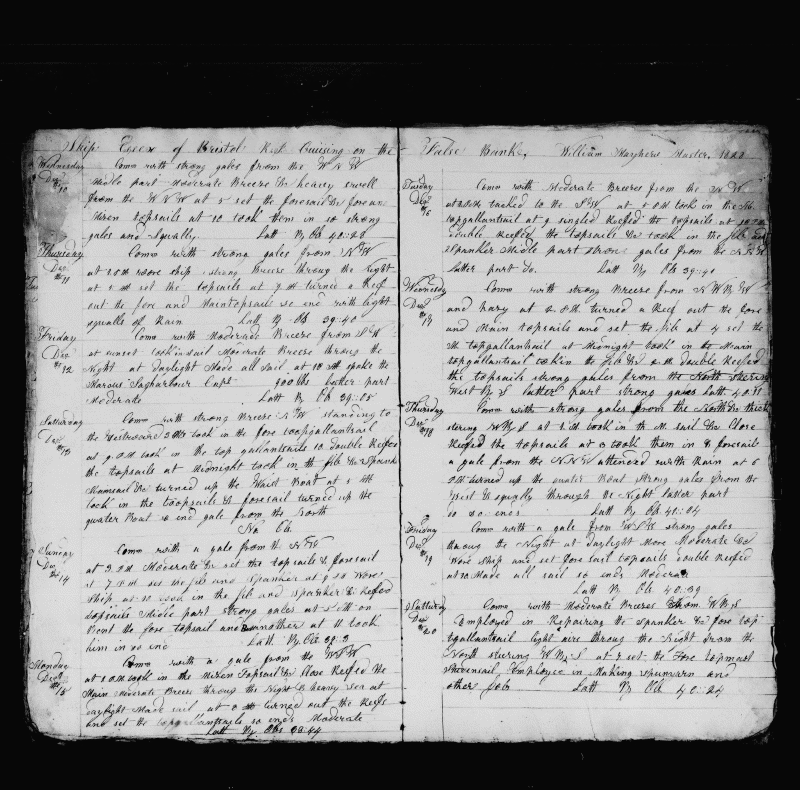 Ship Essex of Bristol R.I. Cruising on the
Wednesday Coms with strong gales from the W N W
Dec 10 Midle part Moderate Breeze & heavy swell
from the W N W at 5 set the foresail & fore and
Mizen topsails at 10 took them in so strong
gales and Squally. Latt By Ob 40:20
Thursday Coms with strong gales from N W
Dec 11 at wore ship strong Breeze throug the night
at set the topsails at 7 turned a Reef
out the fore and Maintopsails so end with light
squalls of Rain Latt By Ob 39:40
Friday Coms with Moderate Breeze from S W
Dec 12 at sunset took in sail Moderate Breeze throug the
Night at Daylight Made all sail at 10 spoke the
Marcus Sagharbour Capt 900 bbs latter part
Moderate Latt By Ob 39:05
Saturday Coms with strong Breeze N W standing to
Dec 13 the Westward took in the fore topgallantsail
at 9 took in the top gallantsails 10 double Reefed
the topsails at Midnight took in the jib & Spanker
& turned up the Waist Boat at 5
took in the topsails & foresail turned up the
quater Boat so end gale from the North
No Ob.
Sunday Coms with a gale from the N W
Dec 14 at 3 Moderate & set the topsails & foresail
at 7 set the jib and Spanker at 9 Wore
Ship at 10 took in the jib and Spanker & Reefed
topsails Midle part strong gales at
the fore topsail and another at 11 took
him in so end Latt By Ob 38:3
Monday Coms with a gale from the W S W
Dec 15 at took in the Mizen Topsail & Close Reefed the
Main Moderate Breeze throug the Night & heavy sea at
daylight Made sail at turned out the Reefs
and set the topgallantsails so ends Moderate
Latt By Obs 38:44
False Banks, William Mayhew Master.
Tuesday Coms with Moderate Breezes from the N W
Dec 16 at tacked to the S W at took in the
topgallantsail at 9 singled Reefed the topsails at
double Reefed the topsails & took in the jib and
Spanker Midle part strong gales from the N N W
Latter part Do. Latt By Ob 39:41
Wednesday Coms with strong Breeze from N W B N
Dec 17 and hazy at turned a Reef out the fore
and Main topsails and set the jib at 4 set the
topgallantsail at Midnight took in the Main
topgallantsail took in the jib & double Reefed
the topsails strong gales from the North steering
West By S latter part strong gales Latt 40:31
Thursday Coms with strong gales from the North & thick
Dec 18 stering W B S at took in the M sail & Close
Reefed the topsails at 6 took them in & foresails
a gale from the N N W attended with Rain at 6
turned up the quater Boat strong gales from the
West & squally through the Night latter part
so so ends Latt By Ob 40:04
Friday Coms with a gale from W S W strong gales
Dec 19 throug the Night at Daylight More Moderate &
Wore Ship and set fore sail topsails double Reefed
at 10 Made all sail so ends Moderate
Latt By Ob 40:39
Saturday Coms with Moderate Breezes from W B S
Dec 20 Employed in Repairing the Spanker & fore top
gallantsail light airs throug the Night from the
North steering W B S at 7 set the Fore topmost
steersail Employed in Making Spunyarn and
other jobs Latt By Ob 40:24